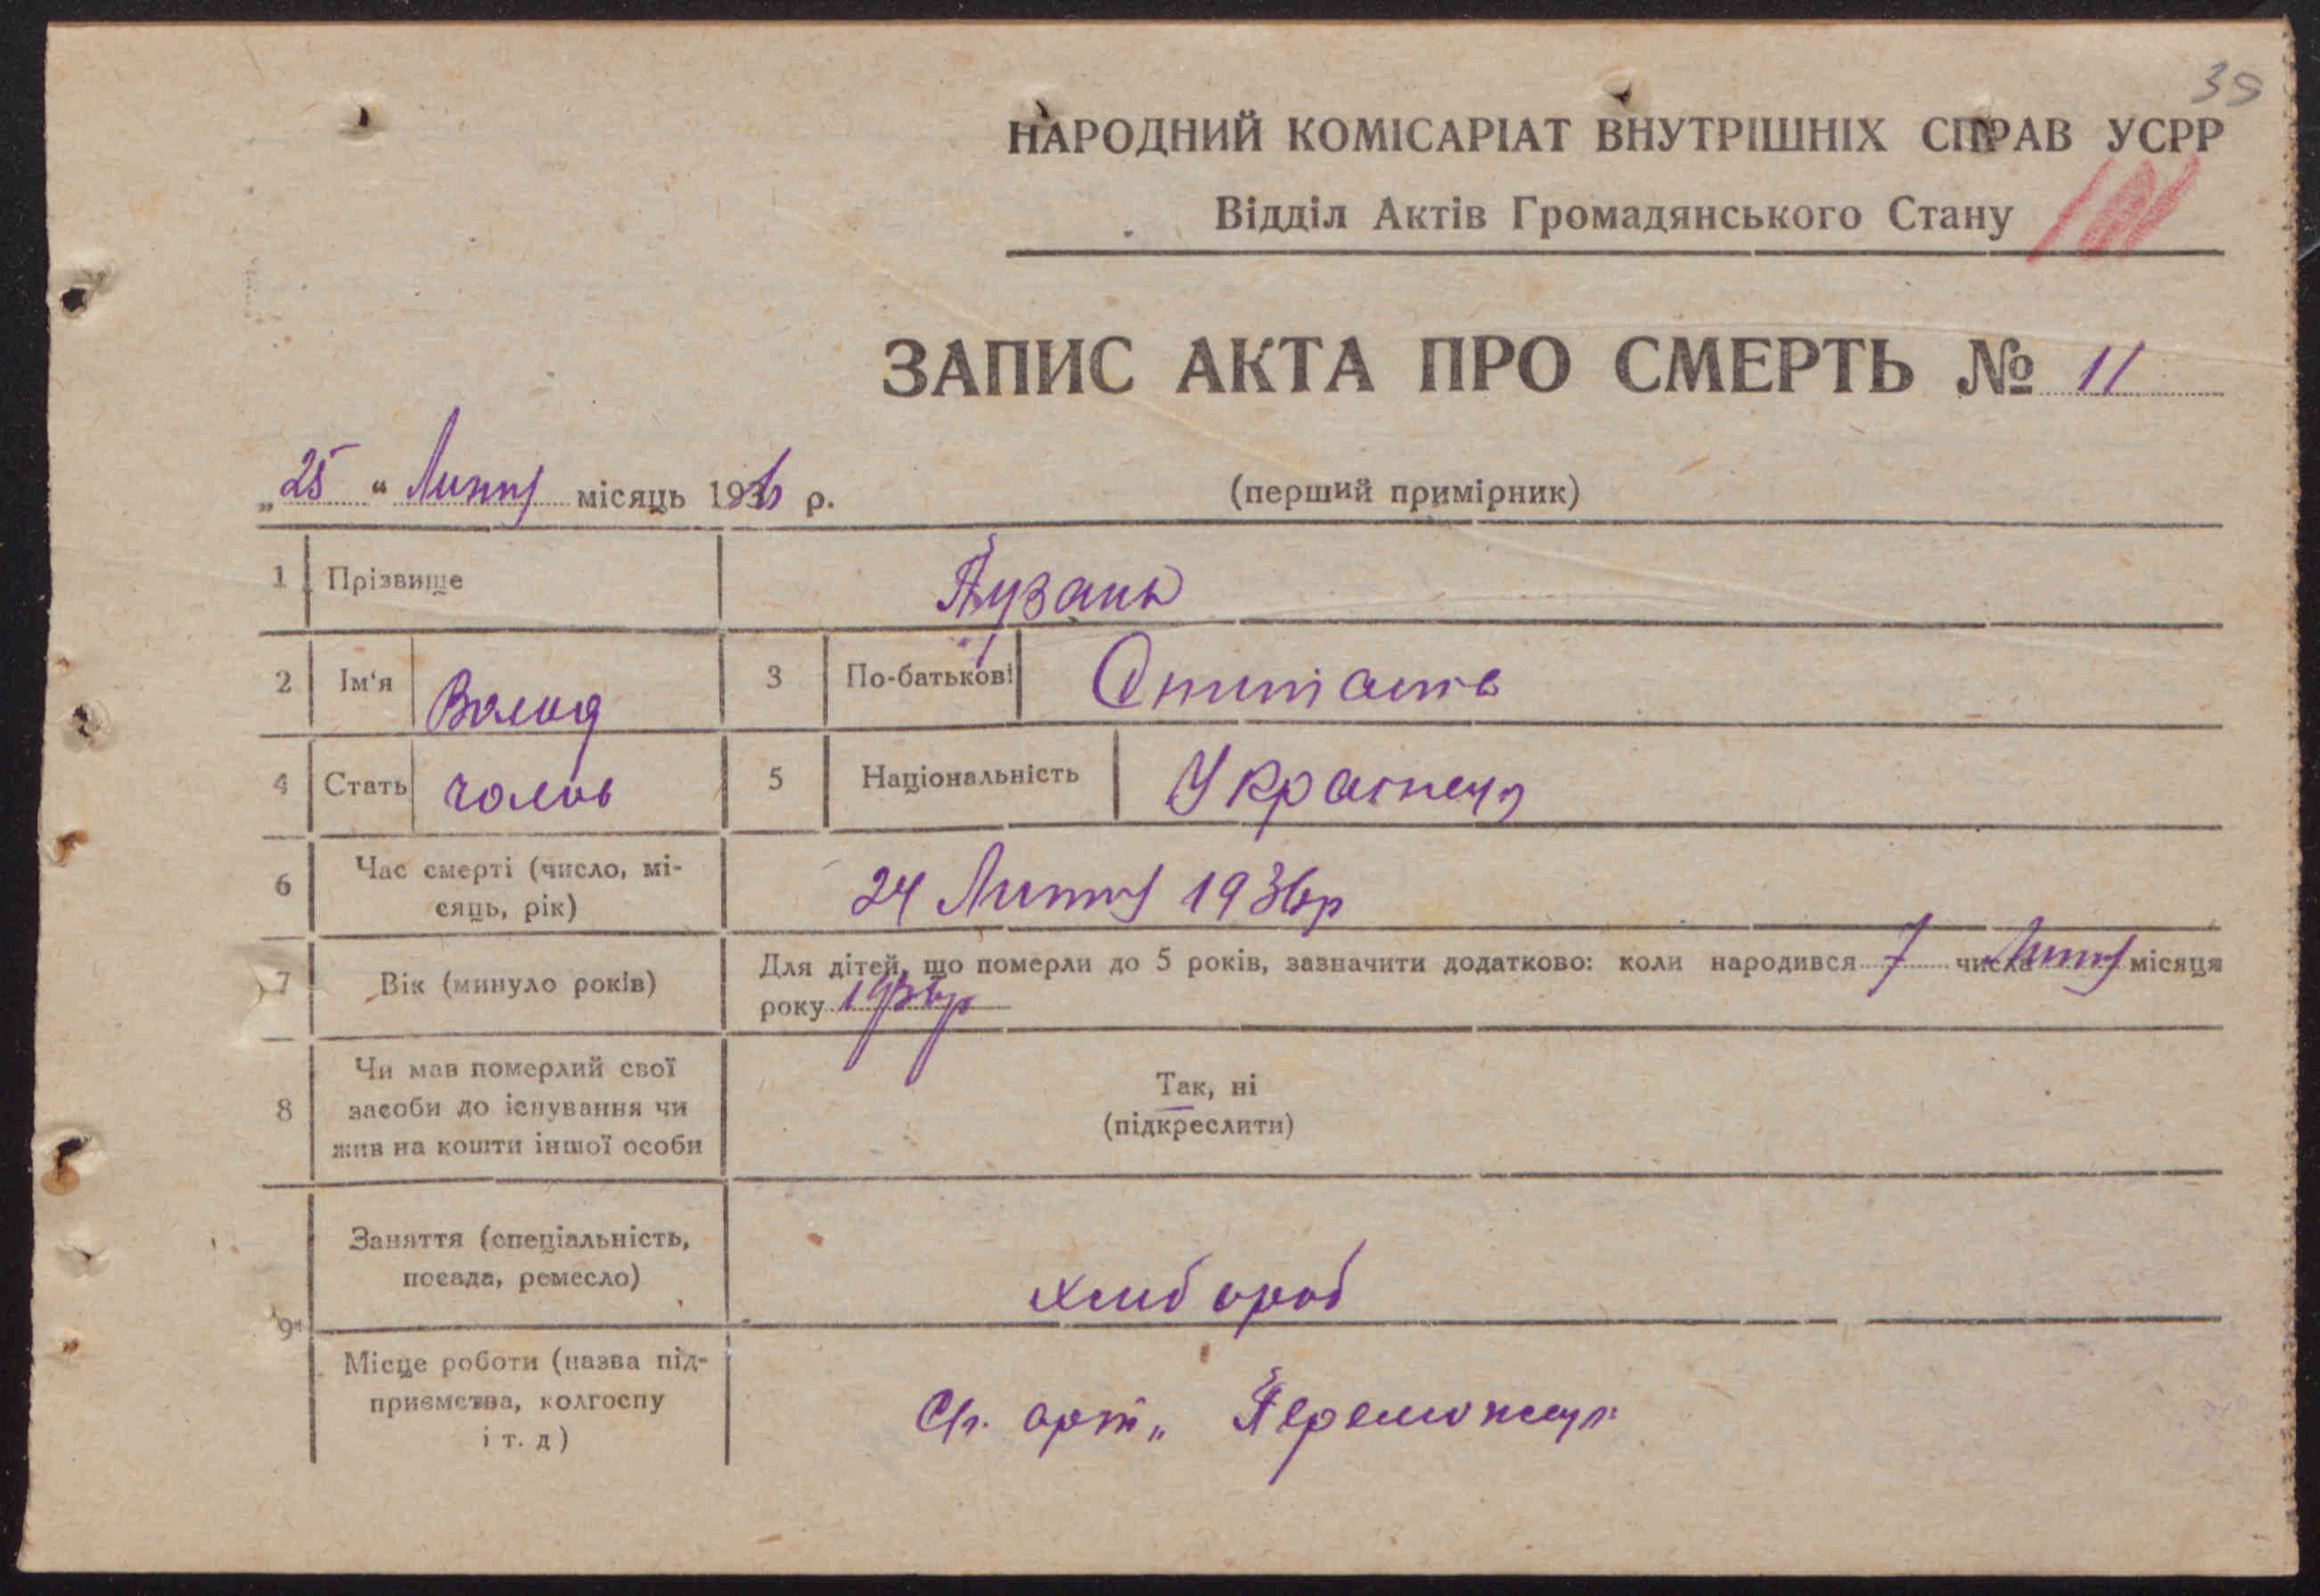 39
НАРОДНИЙ КОМІСАРІАТ ВНУТРІШНІХ СПРАВ УСРР
Відділ Актів Громадянського Стану
ЗАПИС АКТА ПРО СМЕРТЬ № 11
„25“ місяць 1936 р.
(перший примірник)
1 Прізвище Пузань
2 Ім'я Волод 3 По-батькові
4 Стать чолов 5 Національність Украінець
6 Час смерті (число, мі-
сяць, рік) 24 1936р
7 Вік (минуло років) Для дітей, що померли до 5 років, зазначити додатково: коли народився 7 числа місяця
року 1936р
8 Чи мав померлий свої
засоби до існування чи
жив на кошти іншої особи
Так, ні
(підкреслити)
9 Заняття (спеціальність,
посада, ремесло) хлибороб
Місце роботи (назва під-
приємства, колгоспу
і т. д) арт „Переможець